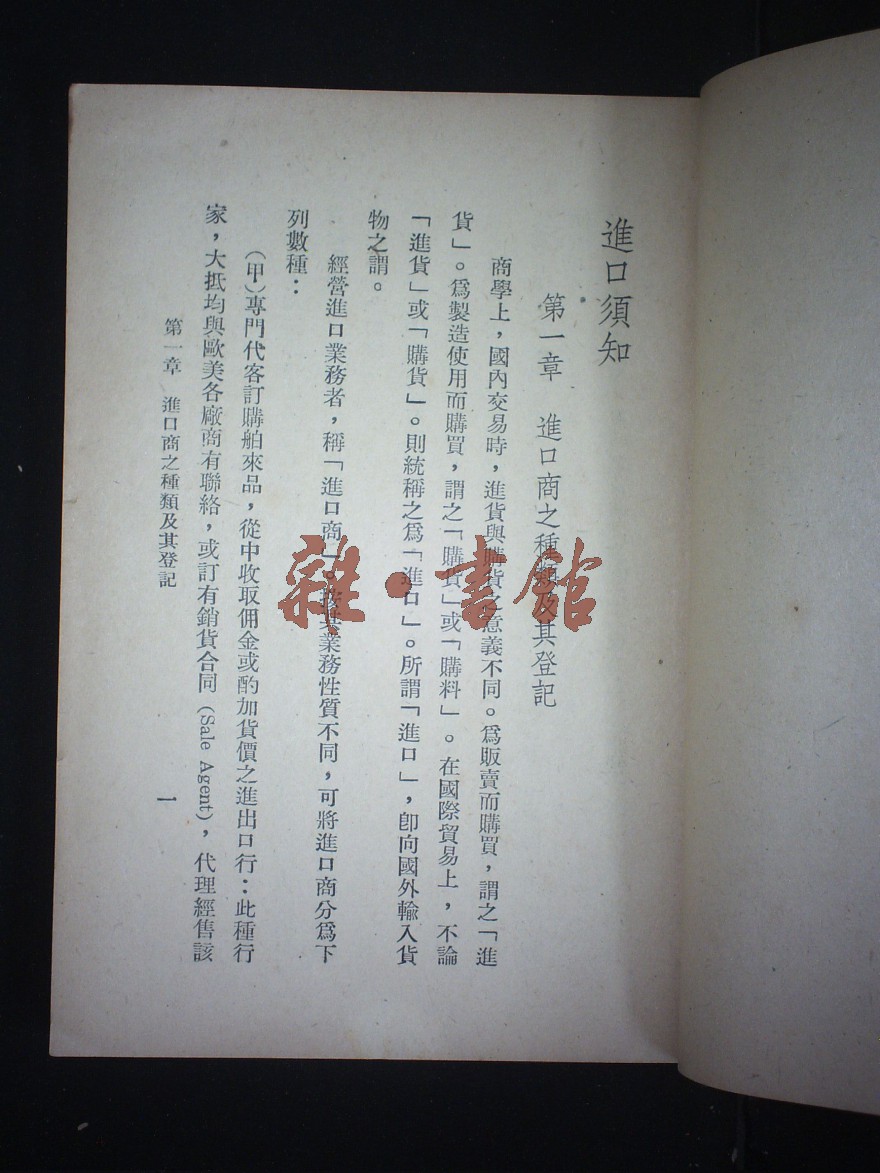 進口須知
第一章　進口商之種類及其登記
商學上，國內交易時，進貨與購貨之意義不同。爲販賣而購買，謂之「進
貨」。爲製造使用而購買，謂之「購貨」或「購料」。在國際貿易上，不論
「進貨」或「購貨」。則統稱之爲「進口」。所謂「進口」，卽向國外輸入貨
物之謂。
經營進口業務者，稱「進口商」。按其業務性質不同，可將進口商分爲下
列數種：
（甲）專門代客訂購舶來品，從中收取佣金或酌加貨價之進出口行：此種行
家，大抵均與歐美各廠商有聯絡，或訂有銷貨合同（Sale Agent），代理經售該
第一章　進口商之種類及其登記
一
雜·書館